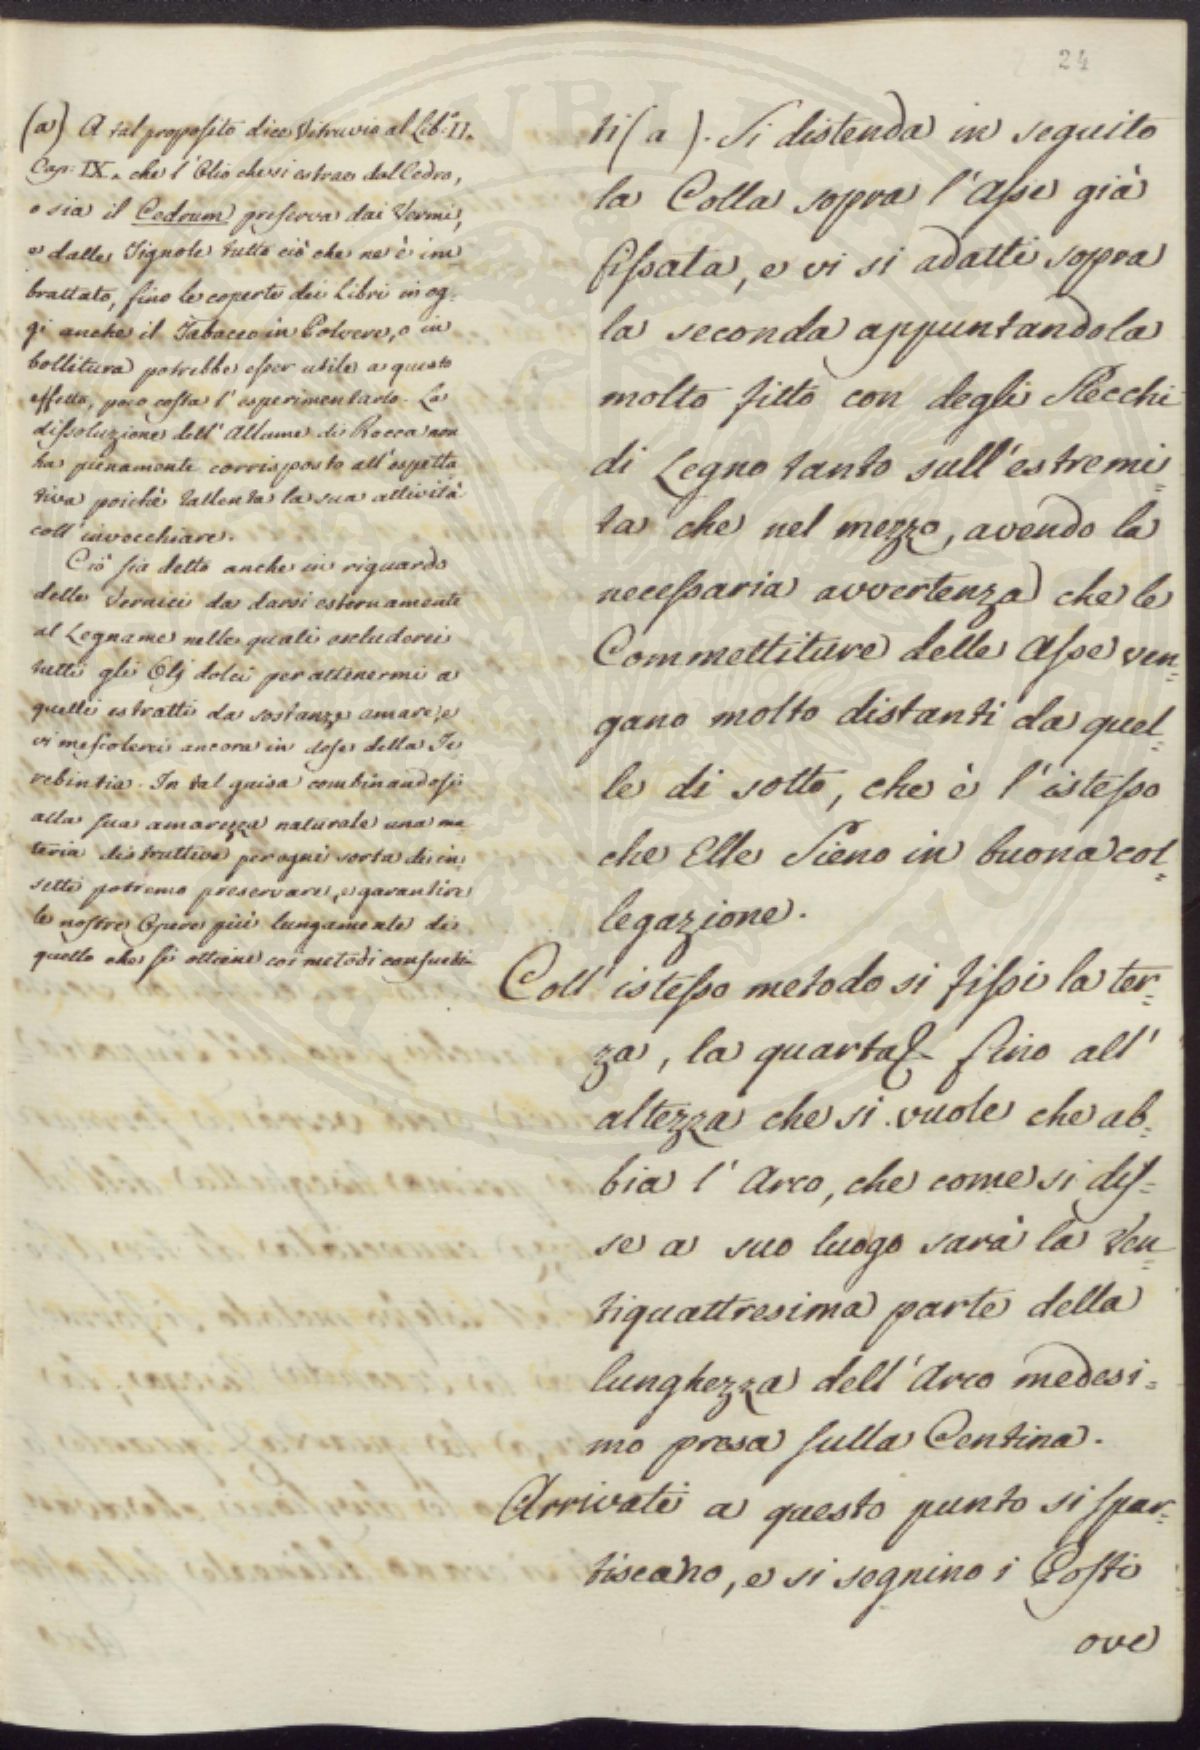 24
(a) A tal proposito dice Vitruvio al Lib.° II.
Cap: IX. che l'Olio che si estrae dal Cedro,
o sia il Cedrum preserva dai Vermi,
e dalle Tignole tutto ciò che ne è im
brattato, fino le coperte dei Libri in og-
gi anche il Tabacco in Polvere, o in
bollitura potrebbe esser utile a questo
effetto, poco costa l'esperimentarlo. La
dissoluzione dell'Allume di Rocca non
ha pienamente corrisposto all'espetta
tiva poichè rallenta la sua attività
coll'invecchiare.
Ciò sia detto anche in riguardo
delle Vernici da darsi esternamente
al Legname nelle quali escluderei
tutti gli Olj dolci per attenermi a
quelli estratti da sostanze amare, e
vi mescolerei ancora in dose della Te
rebintia. In tal guisa combinandosi
alla sua amarezza naturale una ma
teria distruttiva per ogni sorta di in
setti potremo preservare, e garantire
le nostre Opere più lungamente di
quello che si ottiene coi metodi consueti-
ti (a). Si distenda in seguito
la Colla sopra l'Asse già
fissata, e vi si adatti sopra
la seconda appuntandola
molto fitto con degli Stecchi
di Legno tanto sull'estremi=
ta che nel mezzo, avendo la
necessaria avvertenza che le
Commettiture delle Asse ven=
gano molto distanti da quel=
le di sotto, che è l'istesso
che Elle Sieno in buona col=
legazione.
Coll'istesso metodo si fissi la ter=
za, la quarta &. fino all'
altezza che si vuole che ab=
bia l'Arco, che come si dis=
se a suo luogo sarà la Ven=
tiquattresima parte della
lunghezza dell'Arco medesi=
mo presa sulla Centina.
Arrivati a questo punto si spar=
tiscano, e si segnino i Posti
ove